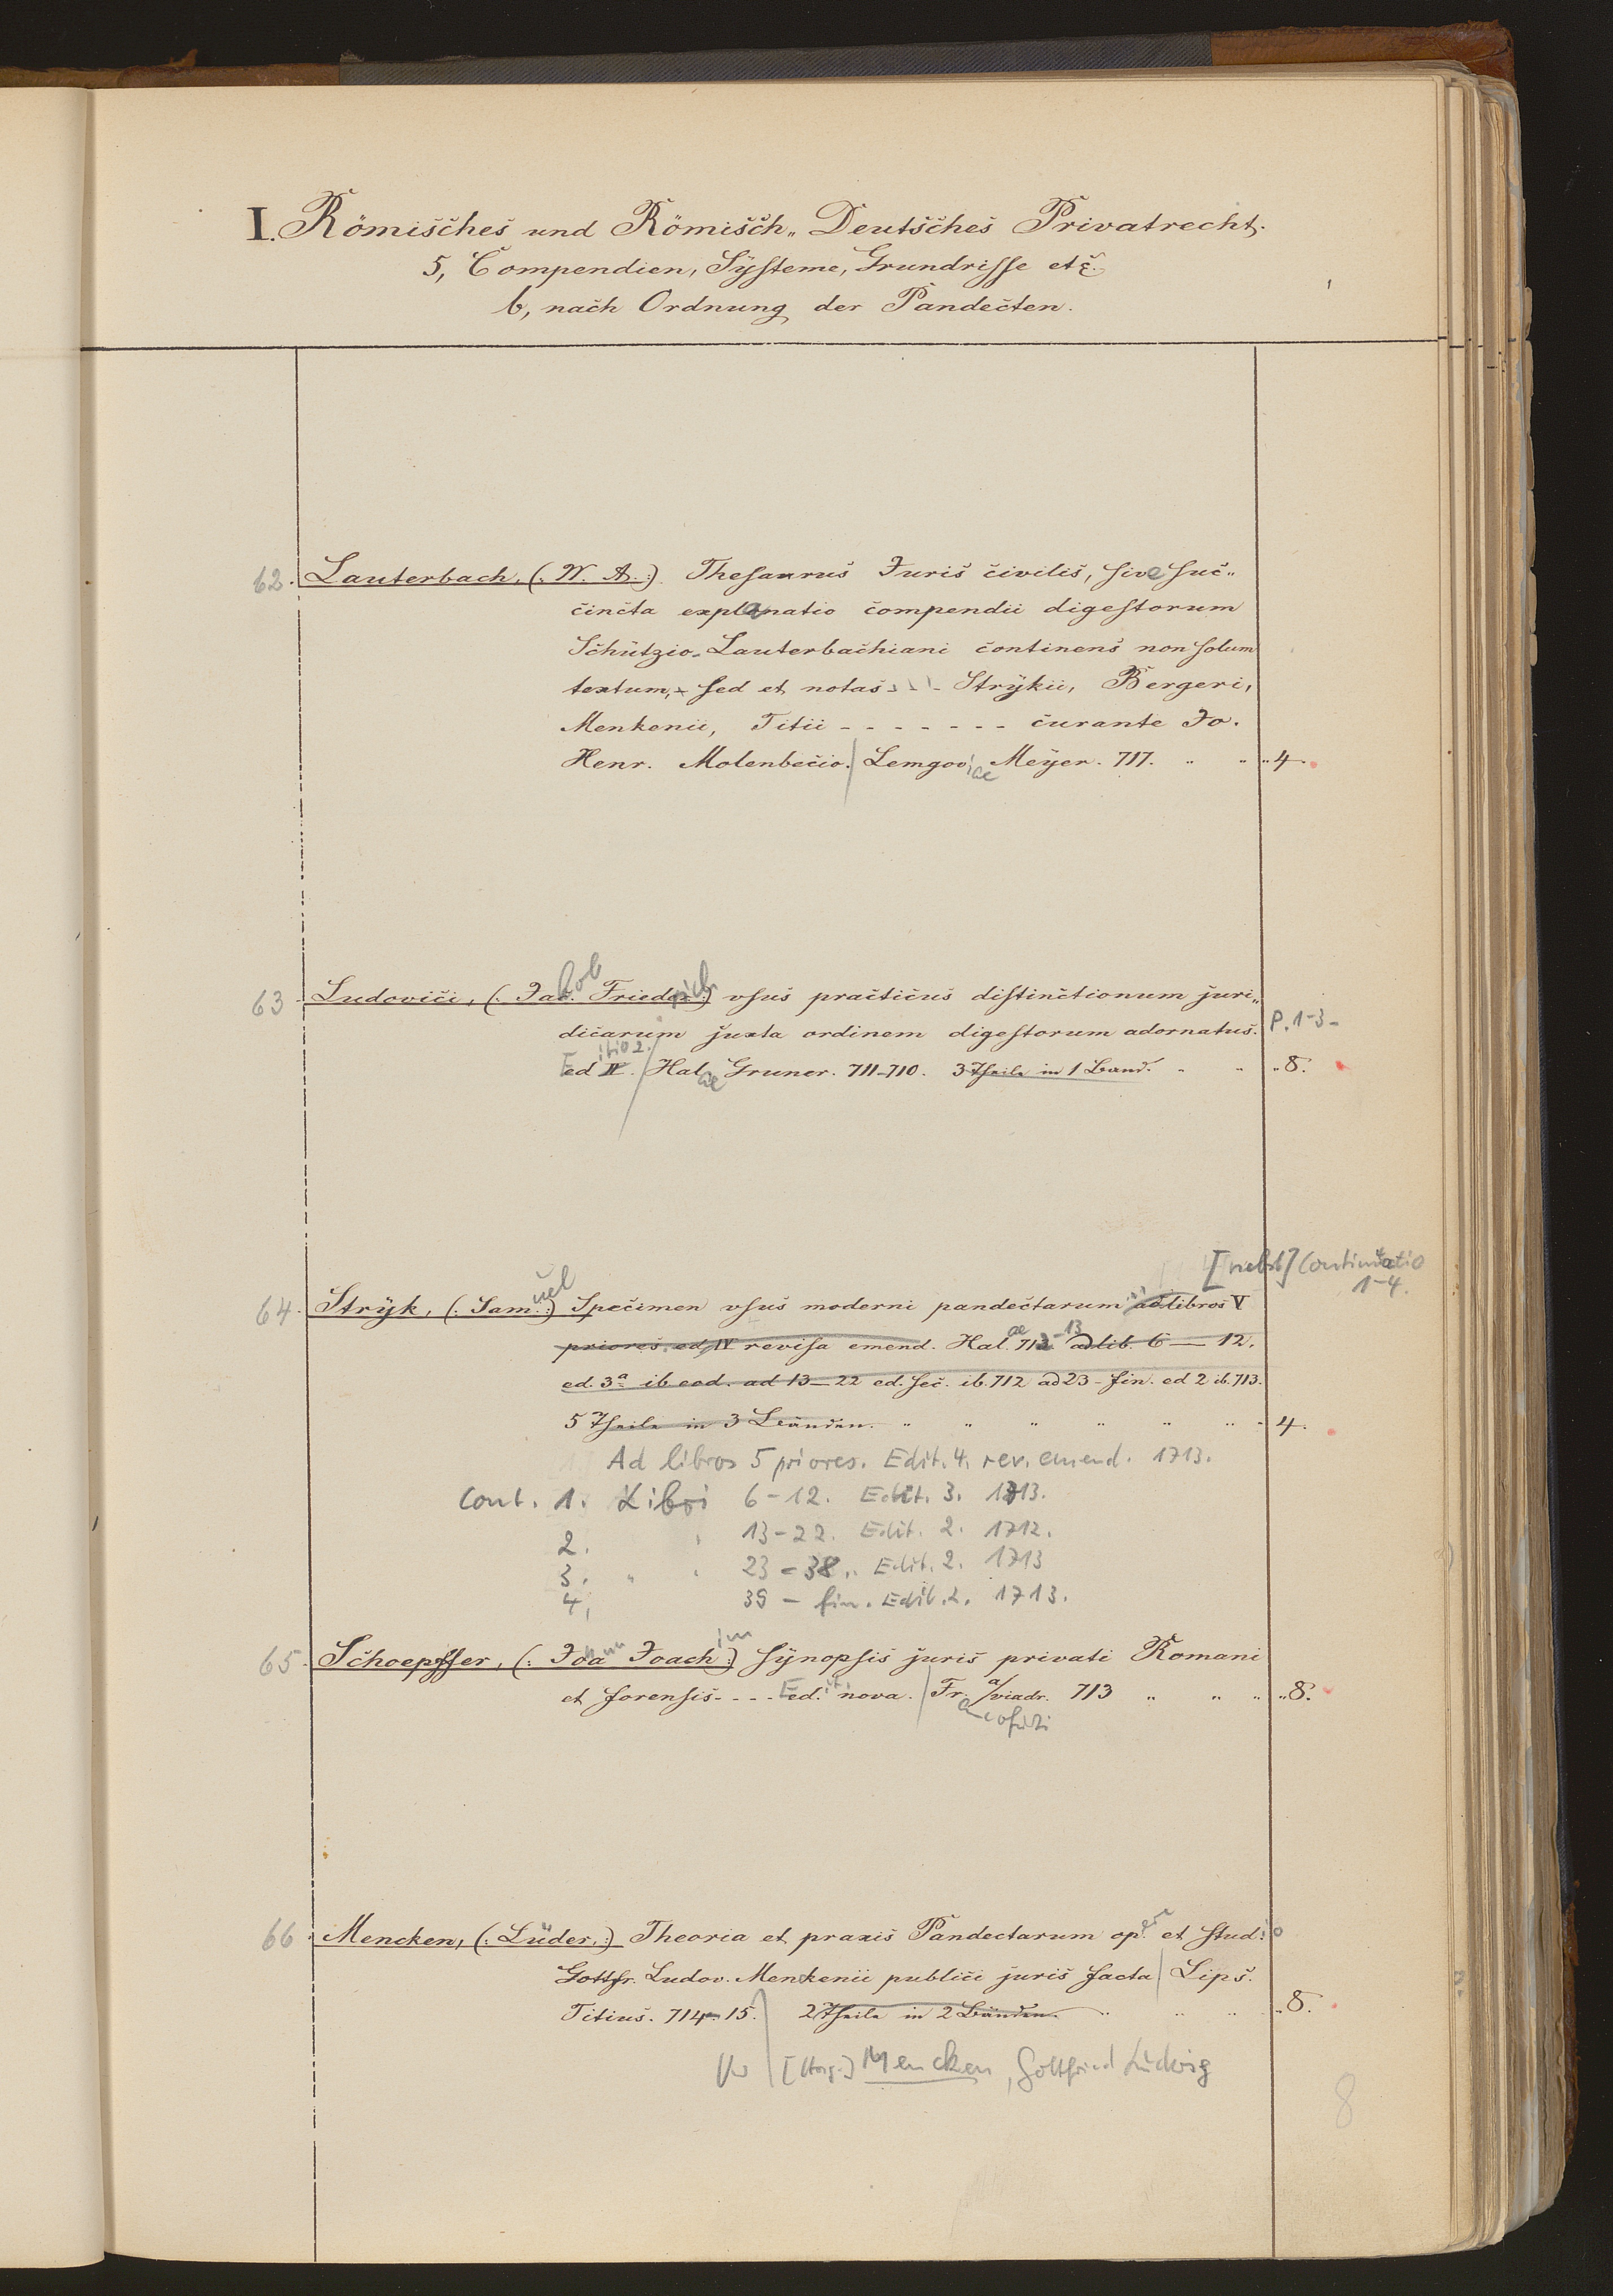 I. Römisches und Römisch„ Deutsches Privatrecht.
5, Compendien, Systeme, Grundrisse etc.
b, nach Ordnung der Pandecten.
62. Lauterbach, (: W. A. :) Thesaurus Juris civilis, sive suc„
cincta explanatio compendii digestorum
Schützio-Lauterbachiani continens non solum
textum, sed et notas - - - Strykii, Bergeri,
Menkenii, Titii - - - - - - - curante Jo.
Henr. Molenbecio. / Lemgoviae Meyer. 717. „ „ „ 4.
63 Ludovici, (: Jac. Frieder :) usus practicus distinctionum juri„
kob rich
dicarum juxta ordinem digestorum adornatus. P. 1-3-
Ed II. itio 2. / Halae Gruner. 711-710. 3 Theile in 1 Band. „ „ „ 8.
[nebst] Continuatio
1-4.
64. Stryk, (: Samuel :) Specimen usus moderni pandectarum ad libros V
priores. ed. IV revisa emend. Halae 713 -13 ad lib. 6 — 12.
ed. 3a ib eod. ad 13—22 ed. sec. ib. 712 ad 23 - fin. ed 2 ib. 713.
5 Theile in 3 Bänden. „ „ „ „ „ „ 4.
Ad libros 5 priores. Edit. 4. rev. emend. 1713.
Cont. 1. Libri 6-12. Edit. 3. 1713.
2. „ 13-22. Edit. 2. 1712.
3. „ „ 23-38. Edit. 2. 1713
4. 39 - fin. Edit. 2. 1713.
65. Schoepffer, (: Joa Joachim :) Synopsis juris privati Romani
nn
et forensis - - - - Edit. nova. / Fr. a/viadr. 713 „ „ „ „ 8.
ancofurti
66. Mencken, (: Lüder. :) Theoria et praxis Pandectarum opera et studio
Gottfr. Ludov. Menkenii publici juris facta / Lips.
Titius. 714-15. 2 Theile in 2 Bänden. „ „ „ 8.
Vw [Hrsg.] Mencken, Gottfried Ludwig
8